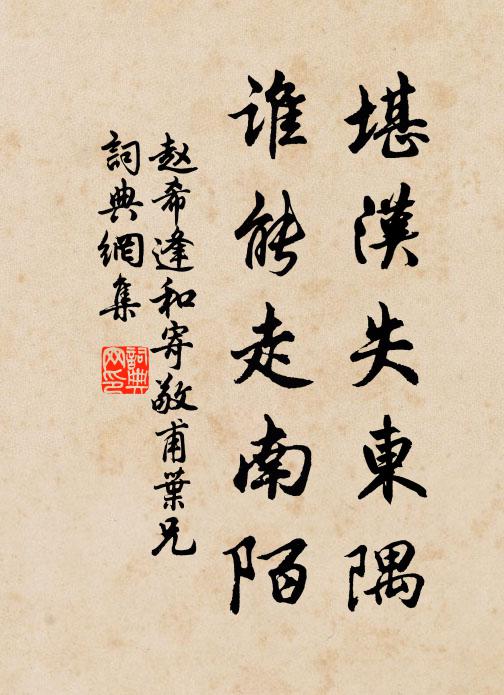 堪漢失東隅
誰能走南陌
赵希逢和寄敬甫葉兄
詞典網集
詞典
网印